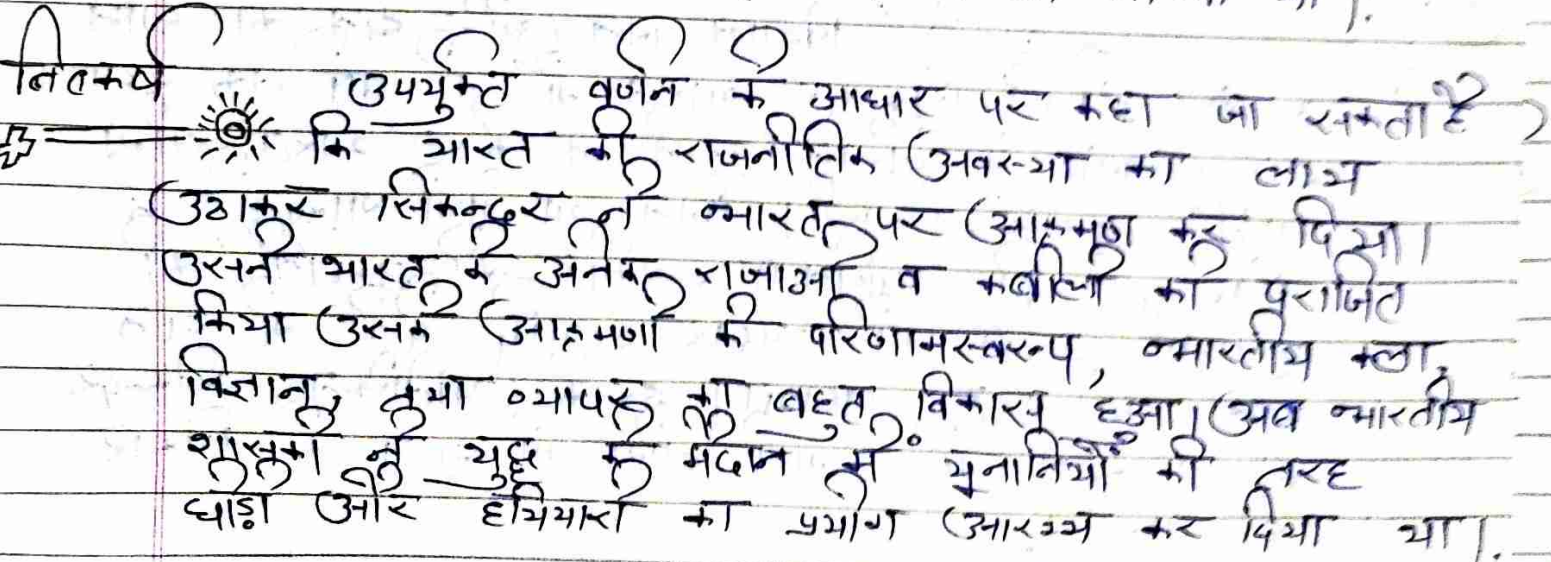 नितकर्ष उपर्युक्त वर्णन के आधार पर कहा जा सकता है
कि भारत की राजनीतिक अवस्था का लाभ
उठाकर सिकन्दर ने भारत पर आक्रमण कर दिया।
उसने भारत के अनेक राजाओं व कबीलों को पराजित
किया उसके आक्रमणों के परिणामस्वरूप, भारतीय कला,
विज्ञान, तथा व्यापार का बहुत विकास हुआ। अब भारतीय
शासकों ने युद्ध के मैदान में यूनानियों की तरह
घोड़ों और हथियारों का प्रयोग आरम्भ कर दिया था।